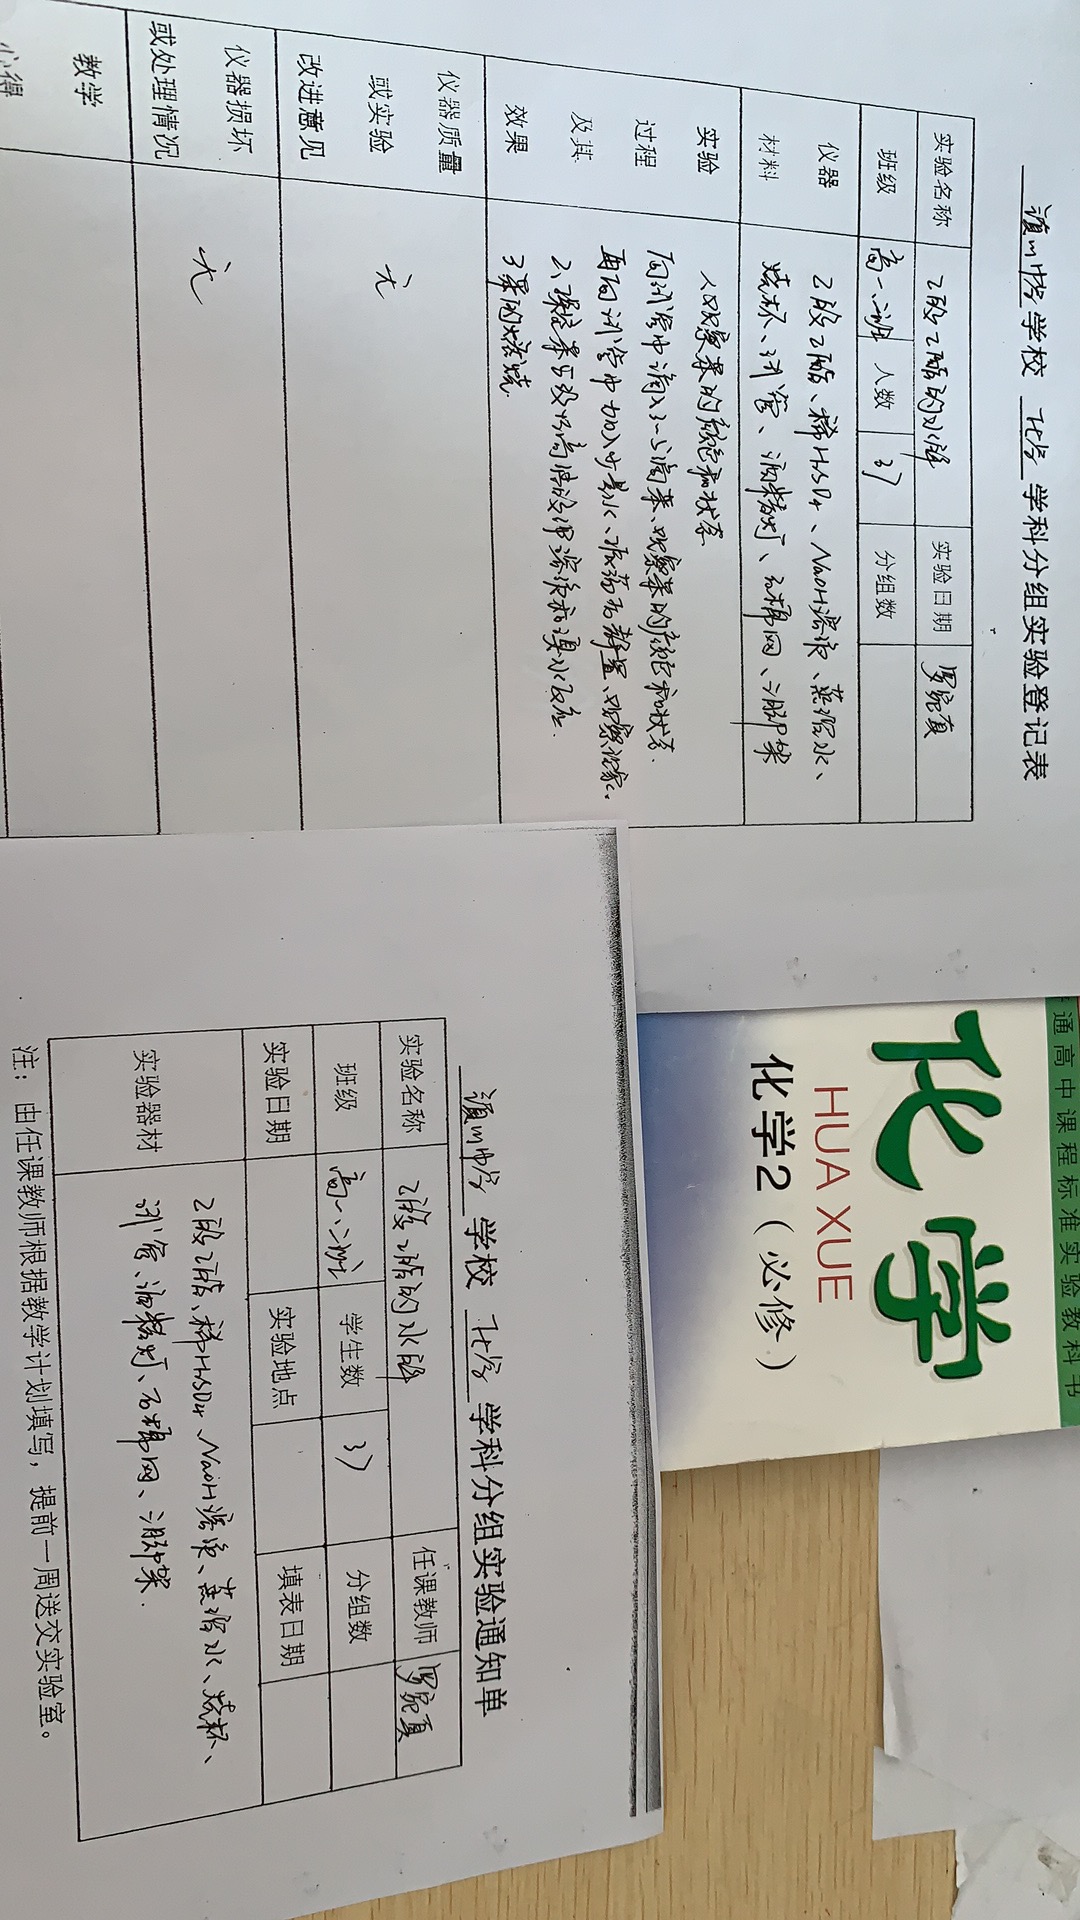 中学学校 化学 学科分组实验登记表
实验名称 乙酸乙酯的水解 实验日期
班级 高一、二班 人数 37 分组数
仪器材料 乙酸乙酯、稀H₂SO₄、NaOH溶液、蒸馏水、
烧杯、试管、酒精灯、石棉网、三脚架
实验过程及其效果 1、观察苯的颜色和状态
向试管中滴入3~5滴苯、观察苯的颜色和状态.
再向试管中加入少量水、振荡后静置、观察现象.
2、探究苯与酸性高锰酸钾溶液和溴水反应.
3、苯的燃烧
仪器质量或实验改进意见 无
仪器损坏或处理情况 无
教学心得
普通高中课程标准实验教科书
化学
HUA XUE
化学2（必修）
中学 学校 化学 学科分组实验通知单
实验名称 乙酸乙酯的水解 任课教师
班级 高一、二班 学生数 37 分组数
实验日期 实验地点 填表日期
实验器材 乙酸乙酯、稀H₂SO₄、NaOH溶液、蒸馏水、烧杯、
试管、酒精灯、石棉网、三脚架.
注：由任课教师根据教学计划填写，提前一周送交实验室。